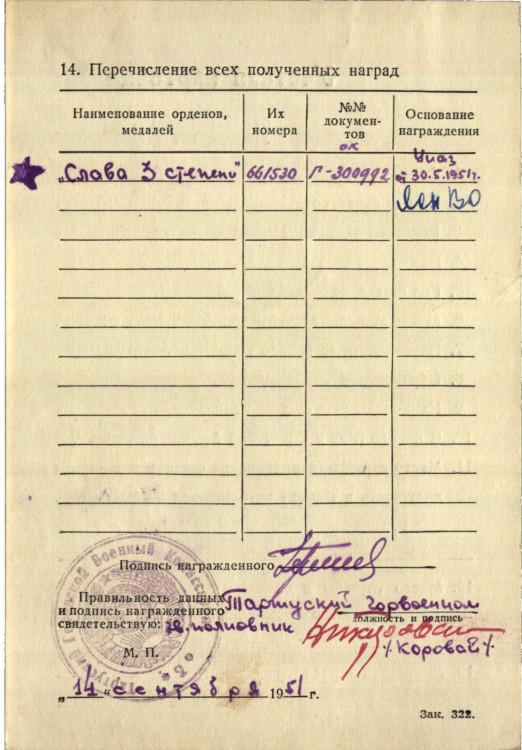 14. Перечисление всех полученных наград
Наименование орденов, медалей
Их номера
№№ документов
ок
Основание награждения
„Слава 3 степени"
661530
Г-300992
Указ
от 30.5.1951г.
Лен ВО
Подпись награжденного
Правильность данных
и подпись награжденного
свидетельствую:
Тартуский горвоенком
п/полковник
должность и подпись
/Коровай/
М. П.
„14" сентября 1951 г.
Зак. 322.